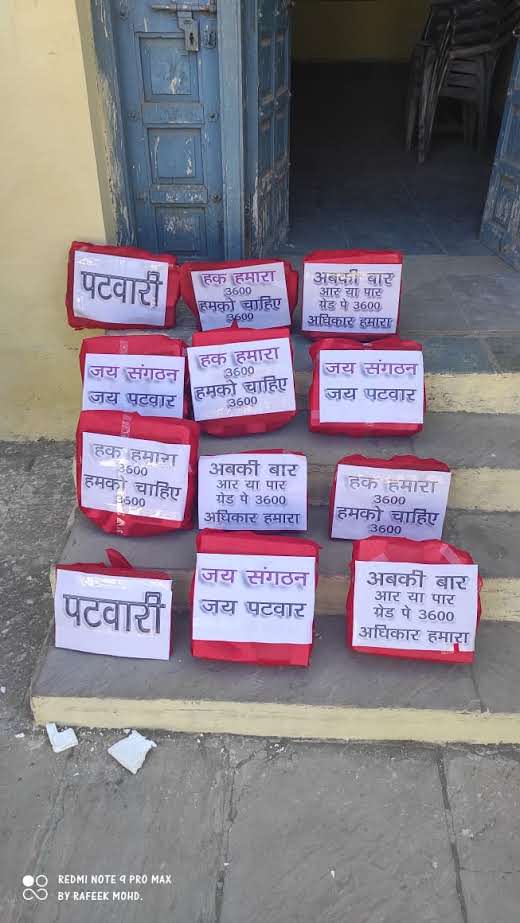 पटवारी
हक हमारा
3600
हमको चाहिए
3600
अबकी बार
आर या पार
ग्रेड पे 3600
अधिकार हमारा
जय संगठन
जय पटवार
हक हमारा
3600
हमको चाहिए
3600
जय संगठन
जय पटवार
हक हमारा
3600
हमको चाहिए
3600
अबकी बार
आर या पार
ग्रेड पे 3600
अधिकार हमारा
हक हमारा
3600
हमको चाहिए
3600
पटवारी
जय संगठन
जय पटवार
अबकी बार
आर या पार
ग्रेड पे 3600
अधिकार हमारा
REDMI NOTE 9 PRO MAX
BY RAFEEK MOHD.